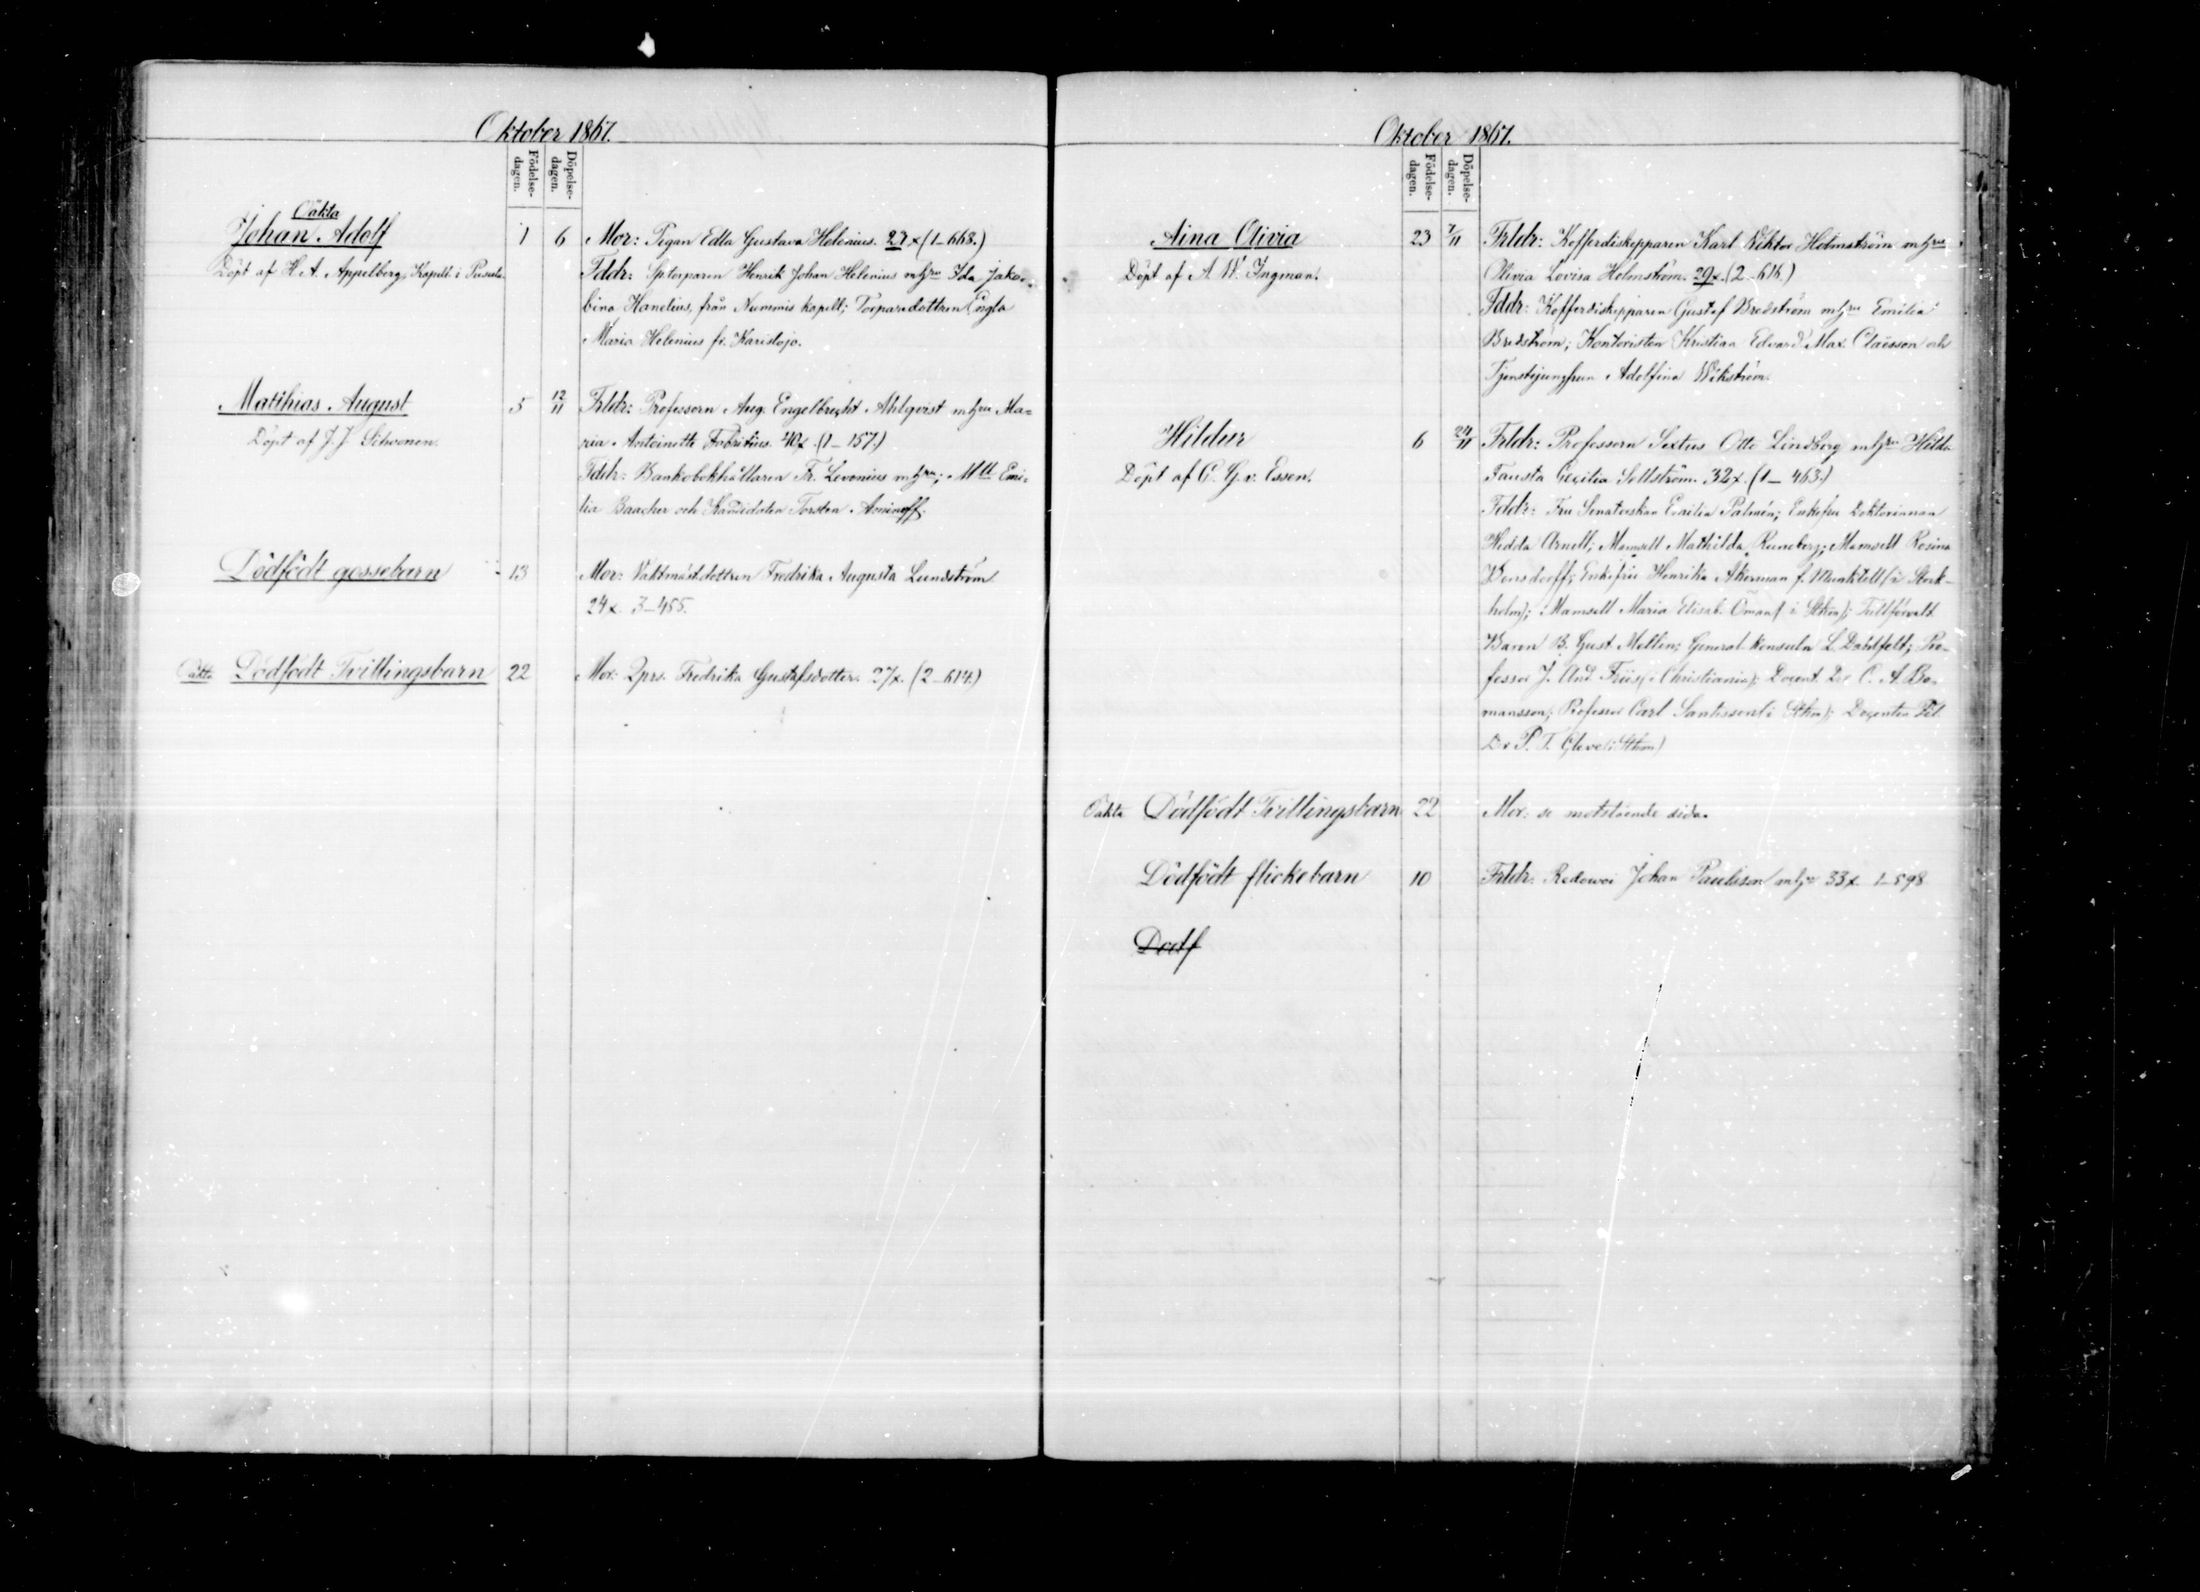 Oktober 1867.
Födelse-
dagen.
Döpelse-
dagen.
Oäkta
Johan Adolf 1 6 Mor: Pigan Edla Gustava Helenius. 27x (1–668.)
Döpt af H. A. Appelberg, Kapell. i Pusula
Fddr: Sptorparen Henrik Johan Helenius mhru Ida Jako-
bina Hanelius, från Nummis kapell; Torparedottren Engla
Maria Helenius fr. Karislojo.
Matthias August 5 12/11 Frldr: Professorn Aug. Engelbrecht Ahlqvist mhru Ma-
Döpt af J. J. Sihvonen.
ria Antoinette Fabritius. 40x. (1–157.)
Fddr: Bankobokhållaren Fr. Levonius mhru; Mll Emi-
lia Baacher och Kandidaten Torsten Aminoff.
Dödfödt gossebarn 13 Mor: Vaktmäst.dottren Fredrika Augusta Lundström
24x. 3–455.
Oäkta Dödfödt Tvillingsbarn 22 Mor: Qprs. Fredrika Gustafsdotter. 27x. (2–614.)
Oktober 1867.
Födelse-
dagen.
Döpelse-
dagen.
Aina Olivia 23 7/11 Frldr: Kofferdiskepparen Karl Viktor Holmström mhru
Döpt af A. W. Ingman.
Olivia Lovisa Holmström. 29x. (2–616.)
Fddr: Kofferdiskepparen Gustaf Bredström mhru Emilia
Bredström; Kontoristen Kristian Edvard Max. Claësson och
Tjenstejungfrun Adolfina Wikström.
Hildur 6 24/11 Frldr: Professorn Sextus Otto Lindberg mhru Hilda
Döpt af C. G. v. Essen.
Fausta Cecilia Sollström. 32x. (1–463.)
Fddr: Fru Senatorskan Emilia Palmén; Enkefru Doktorinnan
Hedda Arnell; Mamsell Mathilda Runeberg; Mamsell Rosina
Bonsdorff; Enkefru Henrika Åkerman f. Munktell (i Stock-
holm); Mamsell Maria Elisab. Öman (i Sthm); Tullförvalt.
Baron B. Gust. Mellin; General konsuln L. Dahlfelt; Pro-
fessor J. And. Friis (i Christiania); Docent. Dr O. A. Bo-
mansson; Professor Carl Santesson (i Sthm); Docenten Fil.
Dr P. T. Cleve (i Sthm)
Oäkta Dödfödt Tvillingsbarn 22 Mor: se motstående sida.
Dödfödt flickebarn 10 Frldr: Johan Paulison mhru 33x 1–898
Dodf